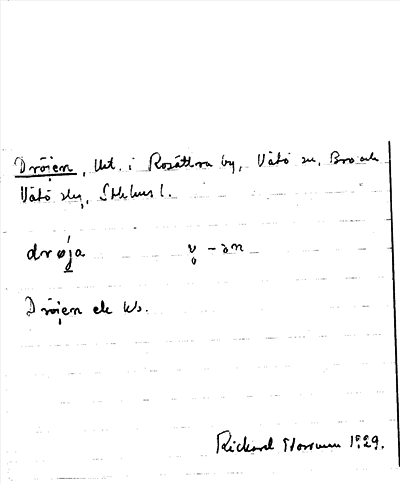 Dröjen, Utt. i Rosättra by, Vätö sn, Bro och
Vätö skg, Sthlms l.
drøja ṿ -ən
Dröjen ek ko.
Richard 1929.